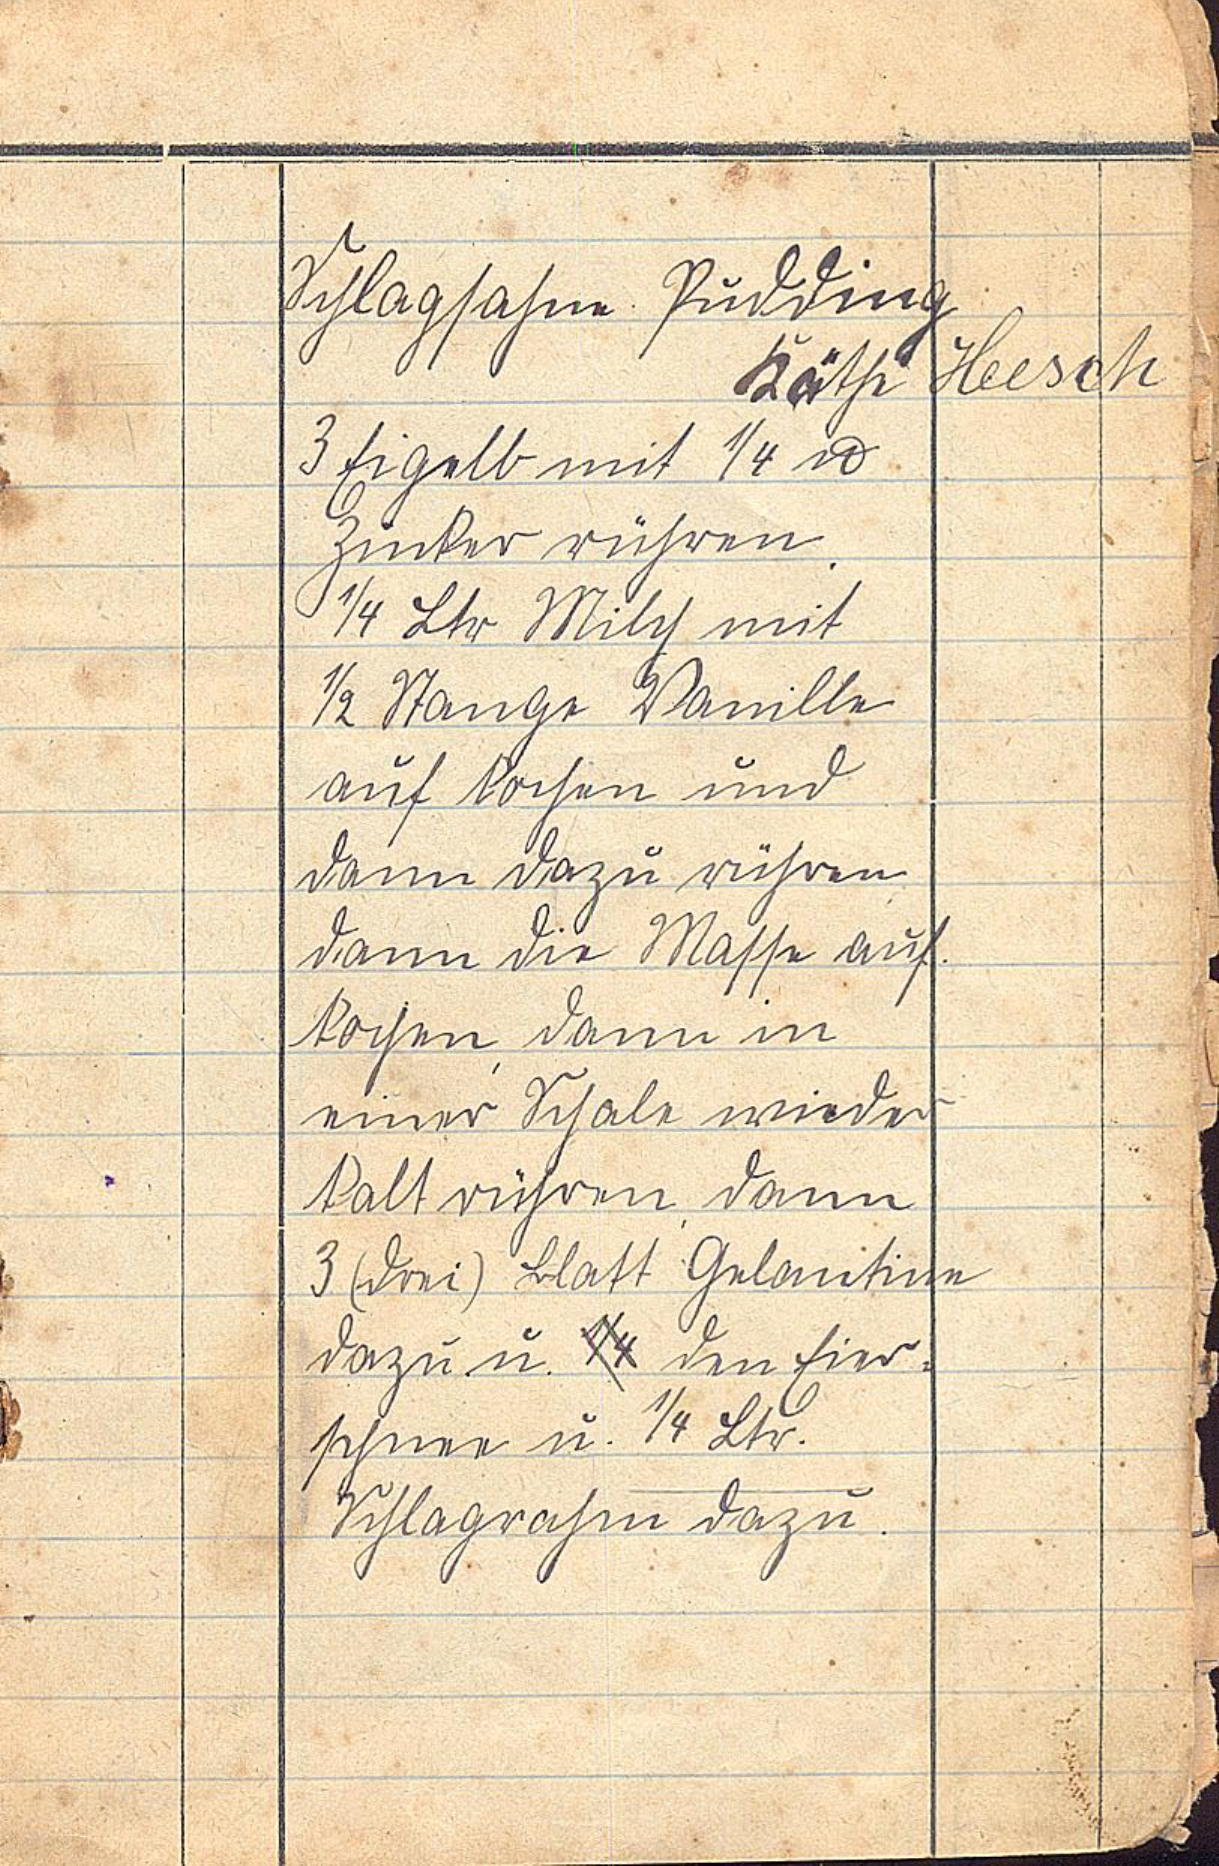 Schlagsahne Pudding
Käthe Heesch
3 Eigelb mit 1/4 ℔
Zucker rühren.
1/4 Ltr Milch mit
1/2 Stange Vanille
auf kochen und
dann dazu rühren
dann die Masse auf.
kochen, dann in
einer Schale wieder
kalt rühren, dann
3 (drei) Blatt Gelantine
dazu u. 1/4 den Eier-
schnee u. 1/4 Ltr.
Schlagrahm dazu.